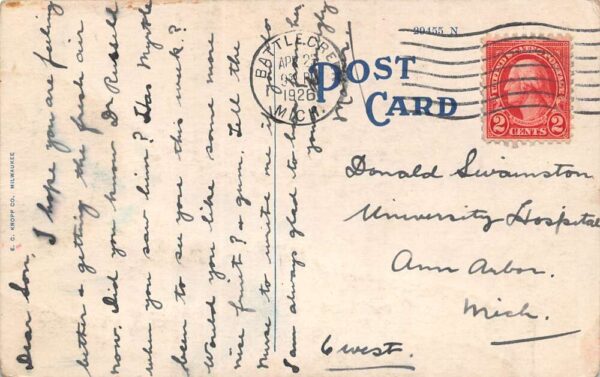 Dear Son, I hope you are feeling
better & getting the fresh air
now. Did you know Dr Russell
when you saw him? Has Myrtle
been to see you this week?
Would you like some more
nice fruit? & gum. Tell the
nurse to write me if you do
I am always glad to hear
lovingly
Mother
POST
CARD
29455 N
BATTLE CREEK
APR 2
1926
MICH.
UNITED STATES POSTAGE
2 CENTS 2
Donald Swainston
University Hospital
Ann Arbor.
Mich.
6 West.
E. C. KROPP CO. MILWAUKEE